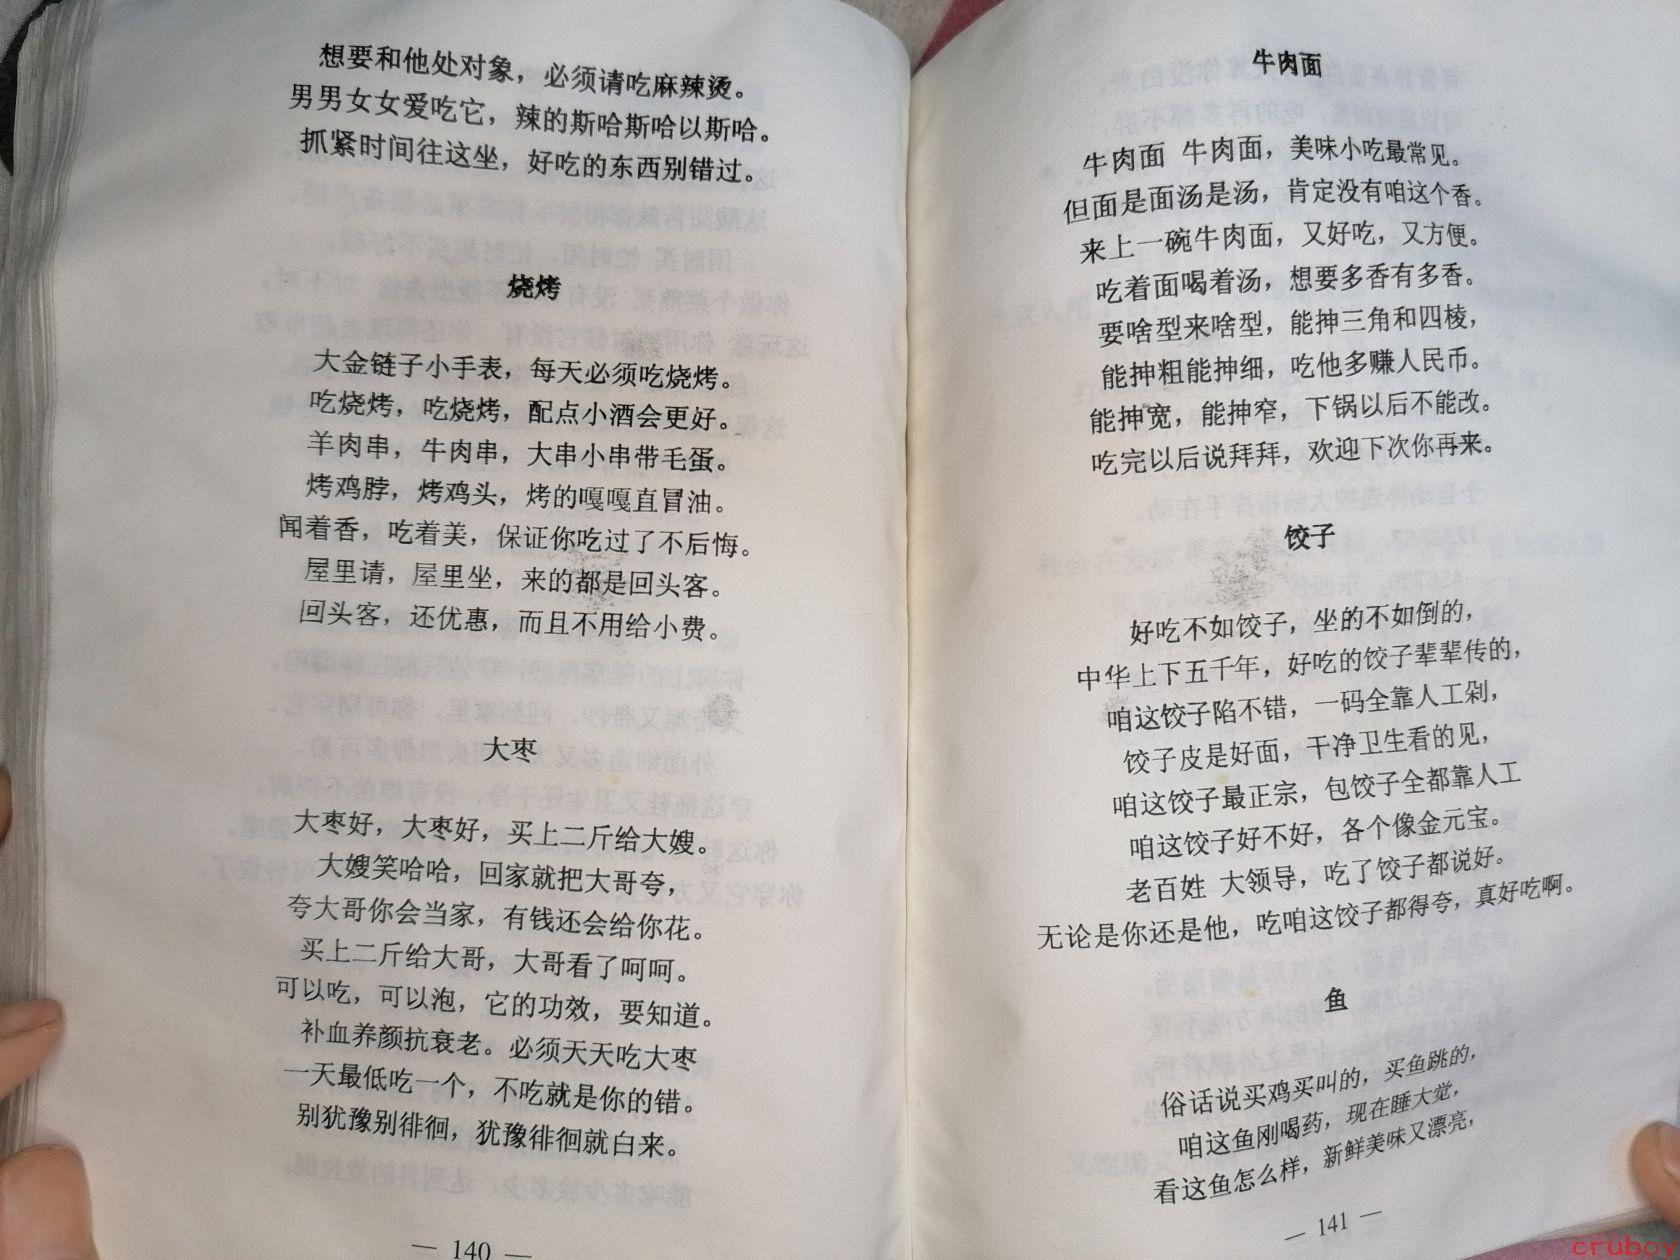 想要和他处对象，必须请吃麻辣烫。
男男女女爱吃它，辣的斯哈斯哈以斯哈。
抓紧时间往这坐，好吃的东西别错过。
烧烤
大金链子小手表，每天必须吃烧烤。
吃烧烤，吃烧烤，配点小酒会更好。
羊肉串，牛肉串，大串小串带毛蛋。
烤鸡脖，烤鸡头，烤的嘎嘎直冒油。
闻着香，吃着美，保证你吃过了不后悔。
屋里请，屋里坐，来的都是回头客。
回头客，还优惠，而且不用给小费。
大枣
大枣好，大枣好，买上二斤给大嫂。
大嫂笑哈哈，回家就把大哥夸，
夸大哥你会当家，有钱还会给你花。
买上二斤给大哥，大哥看了呵呵。
可以吃，可以泡，它的功效，要知道。
补血养颜抗衰老。必须天天吃大枣
一天最低吃一个，不吃就是你的错。
别犹豫别徘徊，犹豫徘徊就白来。
— 140 —
牛肉面
牛肉面 牛肉面，美味小吃最常见。
但面是面汤是汤，肯定没有咱这个香。
来上一碗牛肉面，又好吃，又方便。
吃着面喝着汤，想要多香有多香。
要啥型来啥型，能抻三角和四棱，
能抻粗能抻细，吃他多赚人民币。
能抻宽，能抻窄，下锅以后不能改。
吃完以后说拜拜，欢迎下次你再来。
饺子
好吃不如饺子，坐的不如倒的，
中华上下五千年，好吃的饺子辈辈传的，
咱这饺子陷不错，一码全靠人工剁，
饺子皮是好面，干净卫生看的见，
咱这饺子最正宗，包饺子全都靠人工
咱这饺子好不好，各个像金元宝。
老百姓 大领导，吃了饺子都说好。
无论是你还是他，吃咱这饺子都得夸，真好吃啊。
鱼
俗话说买鸡买叫的，买鱼跳的，
咱这鱼刚喝药，现在睡大觉，
看这鱼怎么样，新鲜美味又漂亮，
— 141 —
cruboy